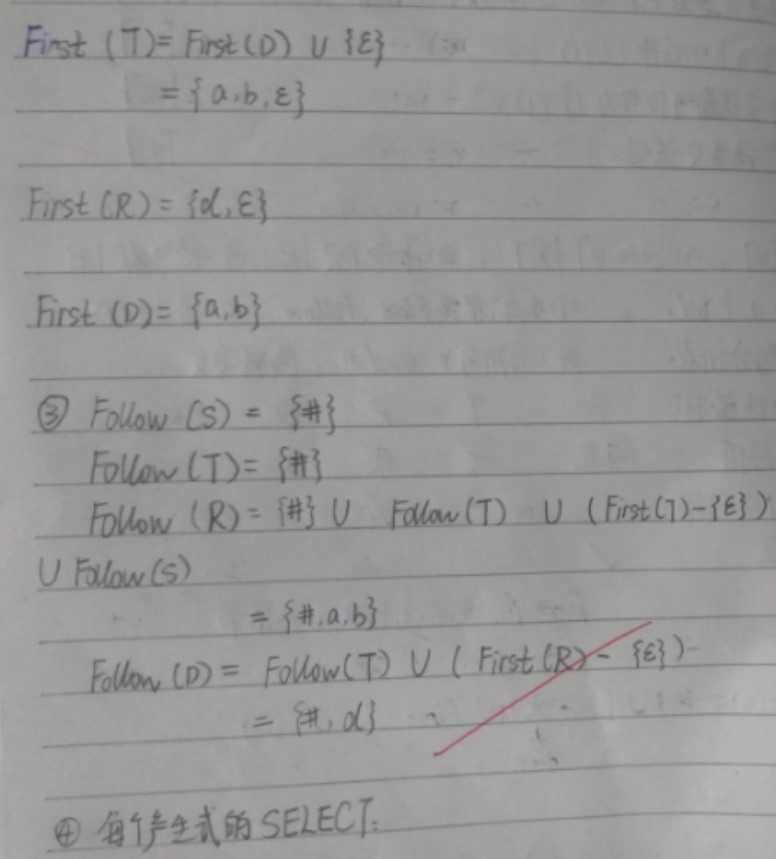 First (T)= First(D) ∪ {ε}
= {a,b,ε}
First (R) = {d,ε}
First (D)= {a,b}
③ Follow (S) = {#}
Follow (T)= {#}
Follow (R)= {#} ∪ Follow(T) ∪ (First(T)-{ε})
∪ Follow(S)
= {#,a,b}
Follow (D)= Follow(T) ∪ ( First(R)- {ε})
= {#,d}
④ 每个产生式的SELECT: